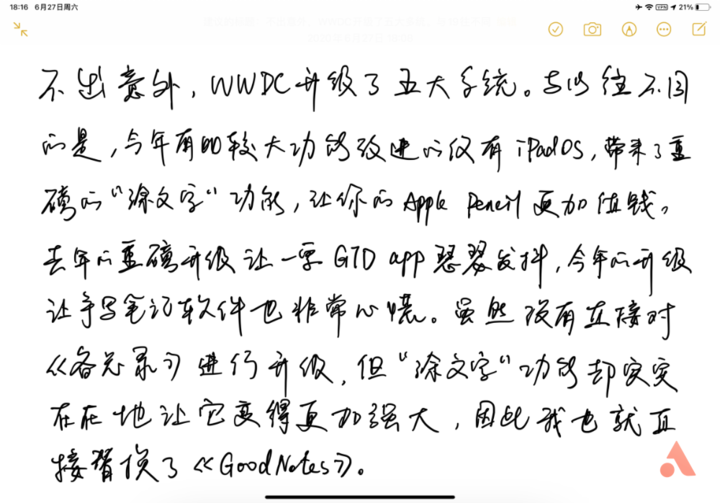 18:16 6月27日周六 VPN 21%
不出意外，WWDC升级了五大系统。与以往不同
的是，今年有的较大功能改进的仅有iPadOS，带来了重
磅的“涂文字”功能，让你的Apple Pencil更加值钱。
去年的重磅升级让一票GTD app瑟瑟发抖，今年的升级
让手写笔记软件也非常心慌。虽然没有直接对
《备忘录》进行升级，但“涂文字”功能却实实
在在地让它变得更加强大，因此我也就直
接替换了《GoodNotes》。